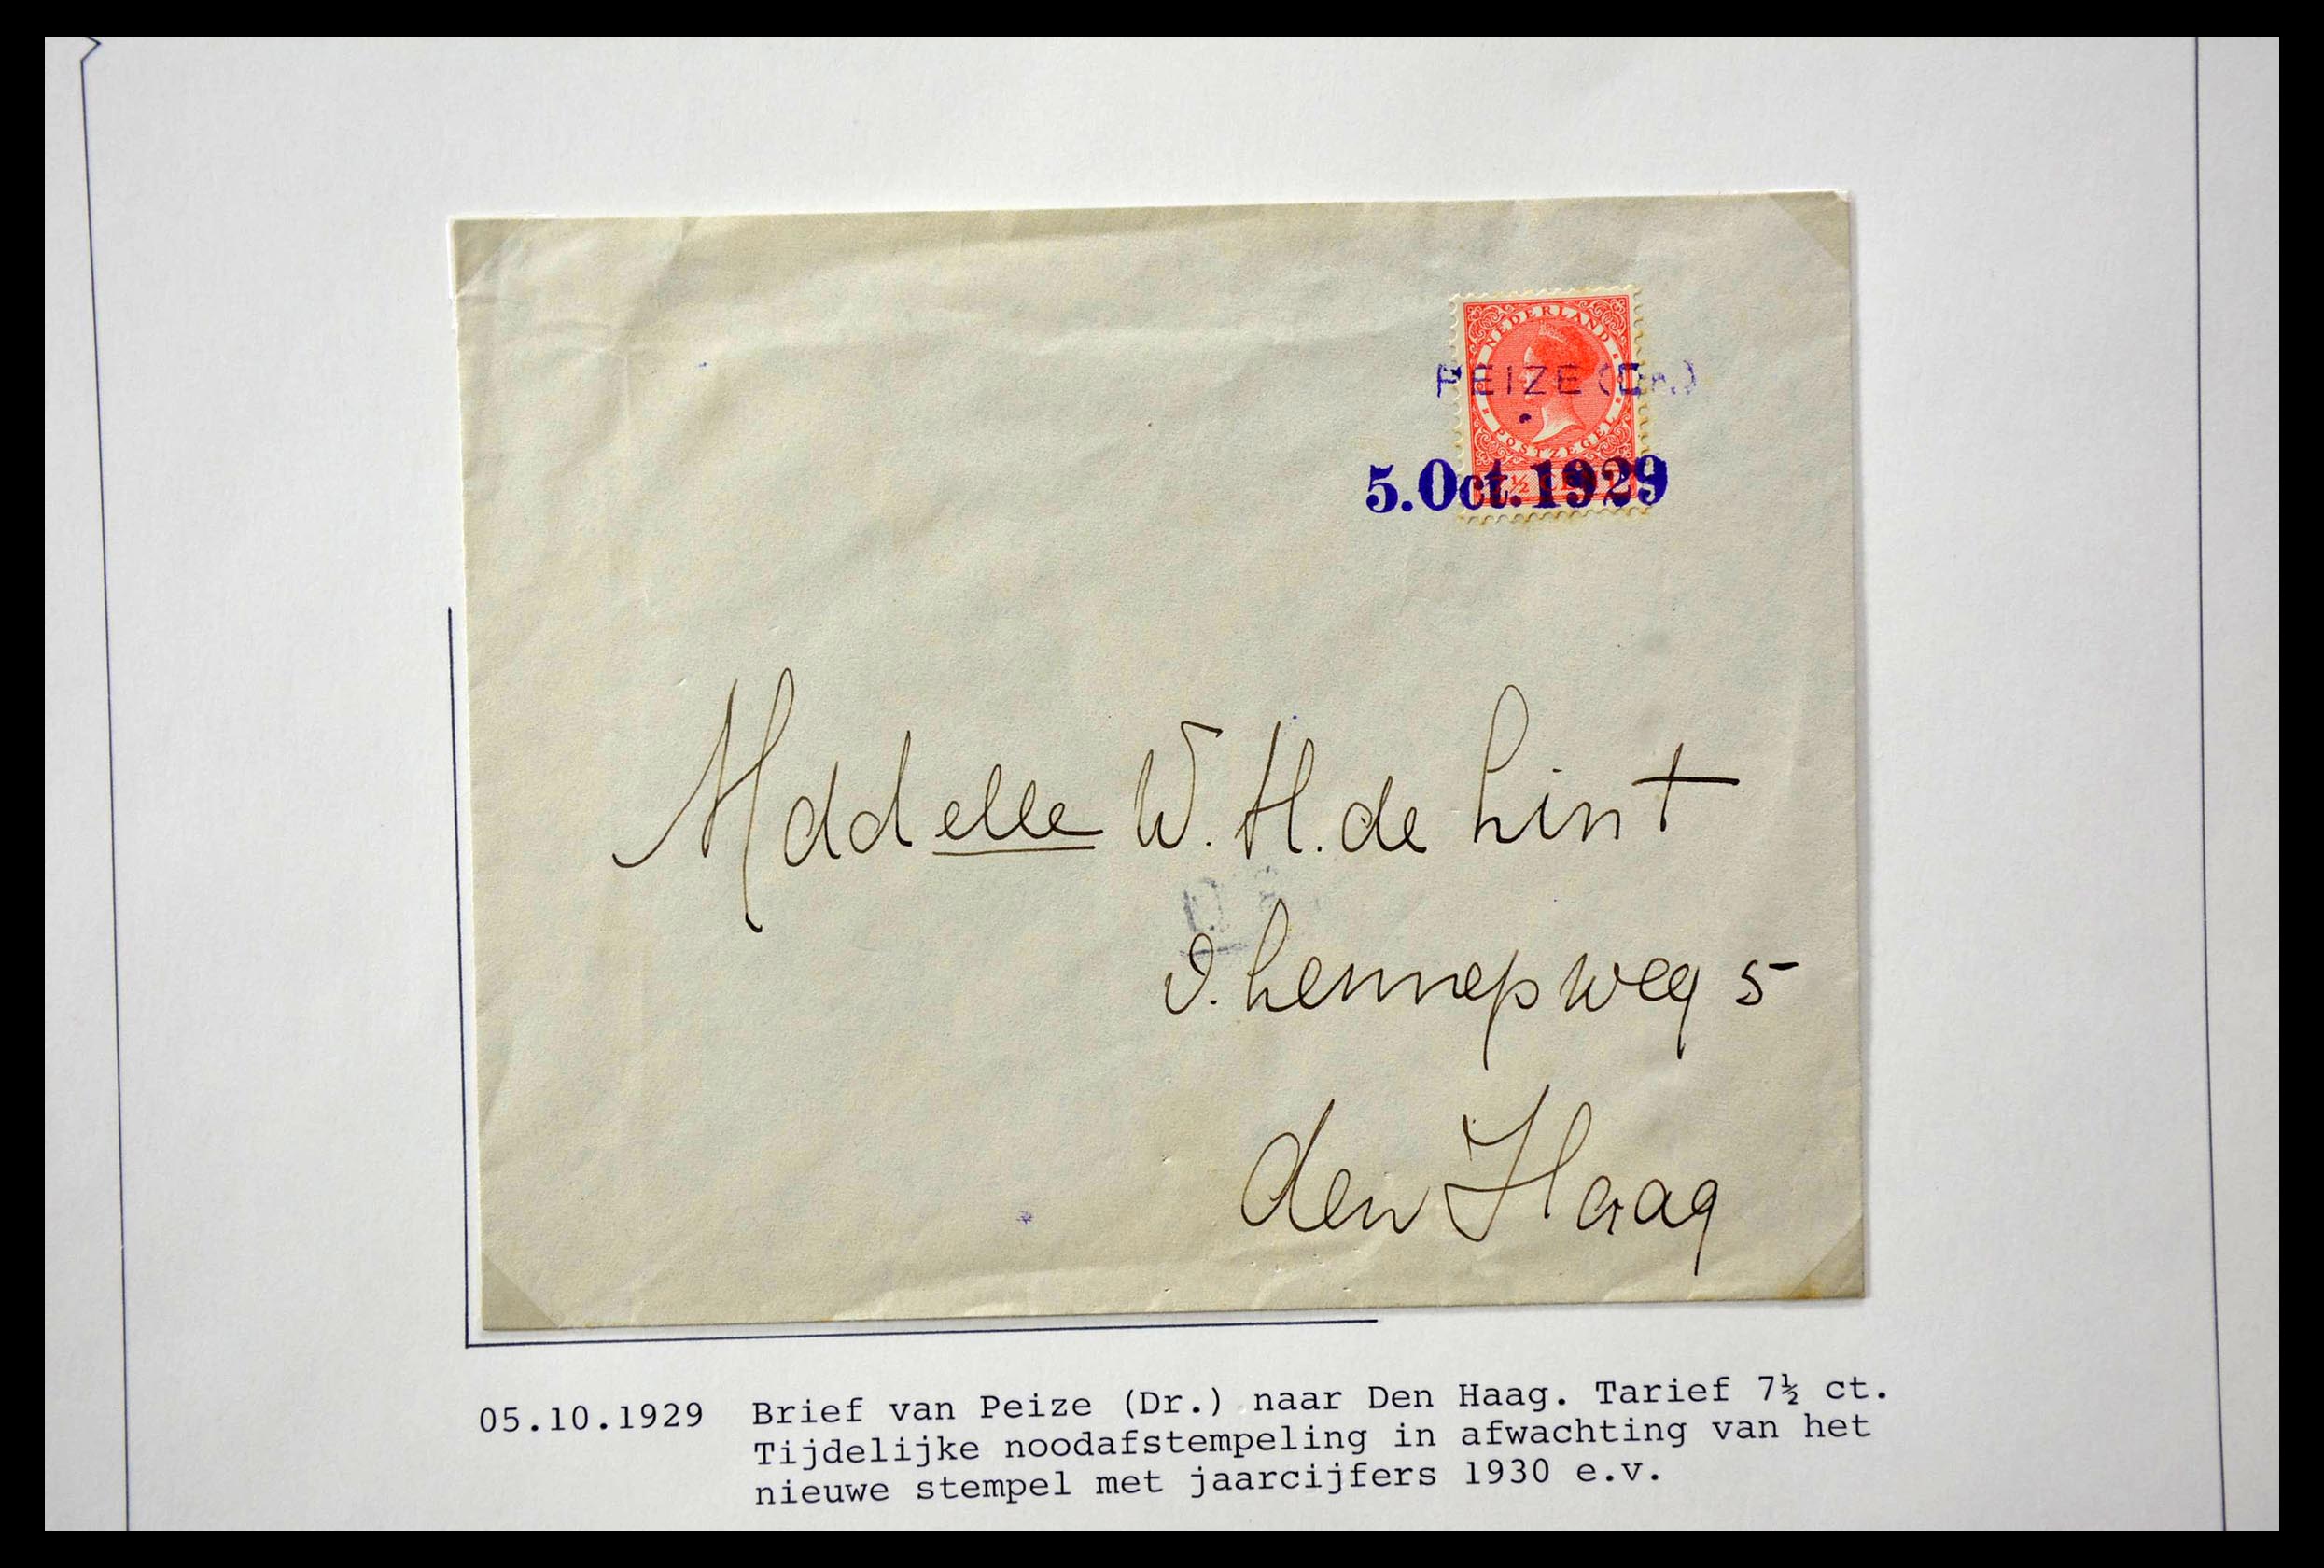 NEDERLAND
PEIZE (Dr.)
POSTZEGEL
7½ CENT
5.Oct.1929
Madelle W. H. de Lint
v. Lennepweg 5
den Haag
05.10.1929 Brief van Peize (Dr.) naar Den Haag. Tarief 7½ ct.
Tijdelijke noodafstempeling in afwachting van het
nieuwe stempel met jaarcijfers 1930 e.v.